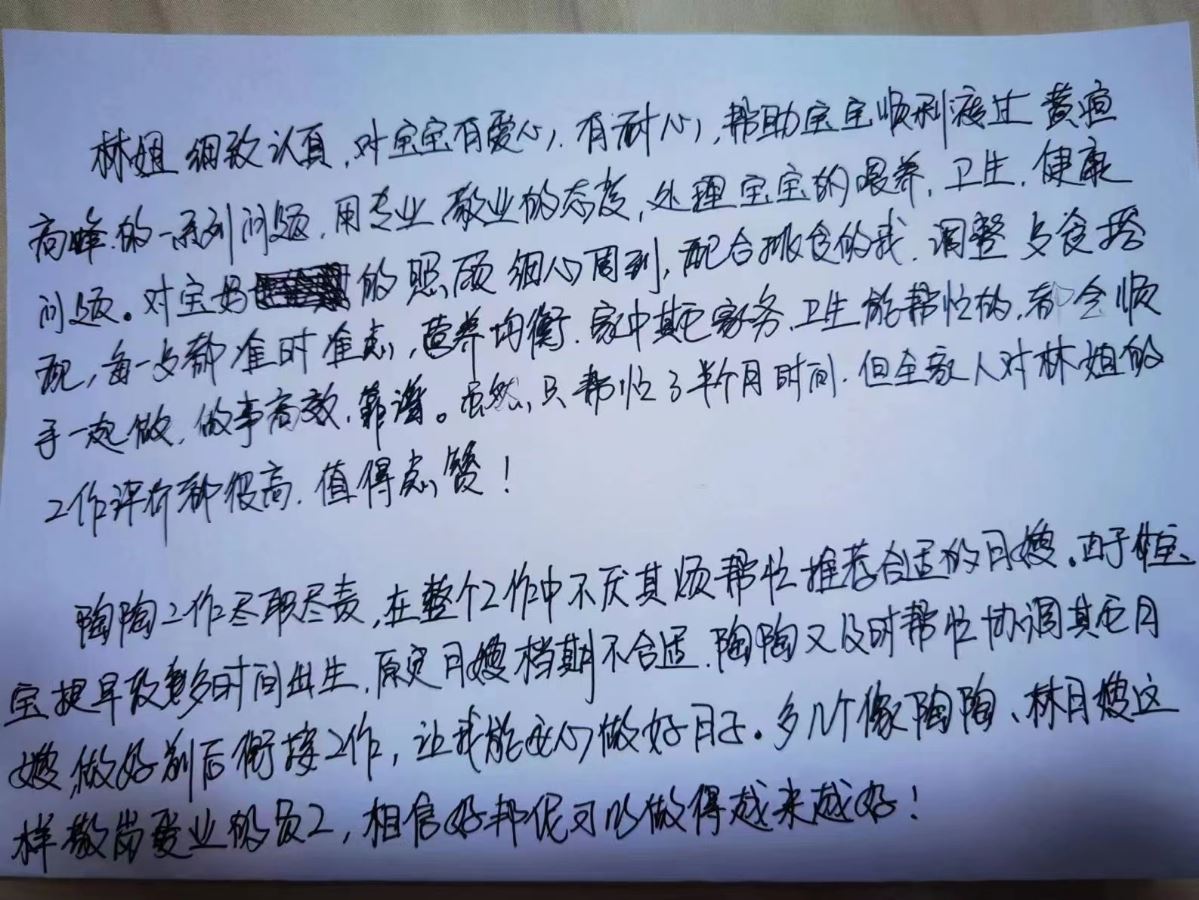 林姐细致认真，对宝宝有爱心，有耐心，帮助宝宝顺利渡过黄疸
高峰的一系列问题，用专业敬业的态度，处理宝宝的喂养，卫生，健康
问题。对宝妈的照顾细心周到，配合挑食的我，调整与食搭
配，每一与都准时准点，营养均衡，家中其它家务，卫生能帮忙的，都会顺
手一起做，做事高效，靠谱。虽然，只帮忙了半个月时间，但全家人对林姐的
工作评价都很高，值得点赞！
陶陶工作尽职尽责，在整个工作中不厌其烦帮忙推荐合适的月嫂。由于宝
宝提早时间出生，原定月嫂档期不合适，陶陶又及时帮忙协调其它月
嫂，做好前后衔接工作，让我能安心做好月子。多几个像陶陶、林月嫂这
样敬岗爱业的员工，相信好邦伲可以做得越来越好！